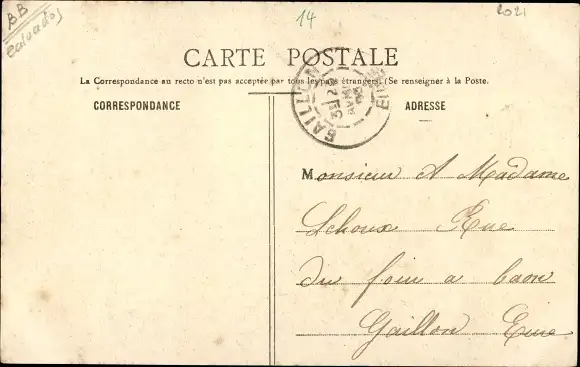 BB
calvados
14
2021
CARTE POSTALE
La Correspondance au recto n'est pas acceptée par tous les pays étrangers. (Se renseigner à la Poste.
CORRESPONDANCE
ADRESSE
GAILLON
EURE
Monsieur A Madame
Lchoux Rue
du four a baon
Gaillon Eure